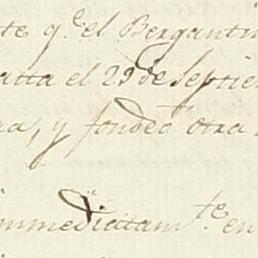 te q.e el Bergantin
atta el 29 de Septie
na, y fondeó otra
immediatam.te en